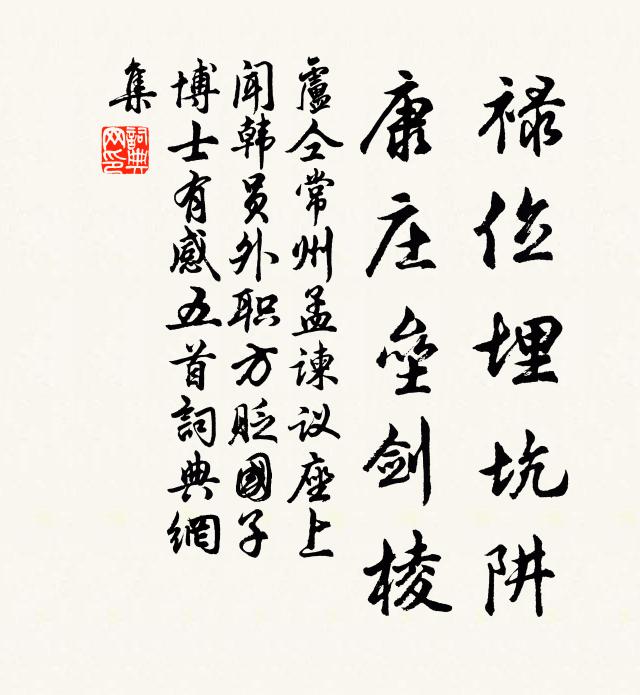 禄位埋坑阱
康庄垒剑棱
盧仝常州孟谏议座上
闻韩员外职方贬國子
博士有感五首詞典網
集
詞典网印